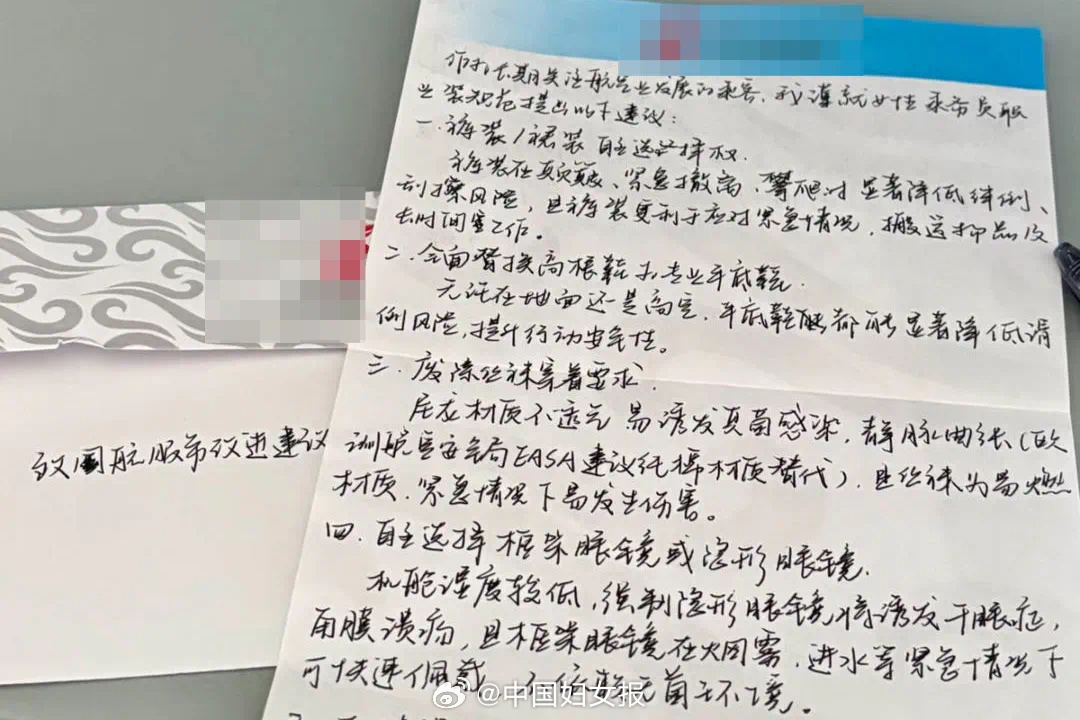 作为长期关注航空业发展的乘客,我谨就女性乘务员职
业装规范提出以下建议:
一.裤装/裙装 自主选择权.
裤装在颠簸、紧急撤离、攀爬时 显著降低绊倒、
刮擦风险,且裤装更利于应对紧急情况,搬运物品及
长时间工作。
二.全面替换高根鞋为专业平底鞋.
无论在地面还是高空,平底鞋都能显著降低滑
倒风险,提升行动安全性。
三.废除丝袜穿着要求.
尼龙材质不透气 易诱发真菌感染,静脉曲张(欧
洲航空安全局EASA建议纯棉材质替代),且丝袜为易燃
材质.紧急情况下易发生伤害。
四.自主选择框架眼镜或隐形眼镜.
机舱湿度较低,强制隐形眼镜将诱发干眼症,
角膜溃疡,且框架眼镜在火烟雾,进水等紧急情况下
可快速佩戴,不依赖无菌环境。
致国航服饰改进建议
@中国妇女报